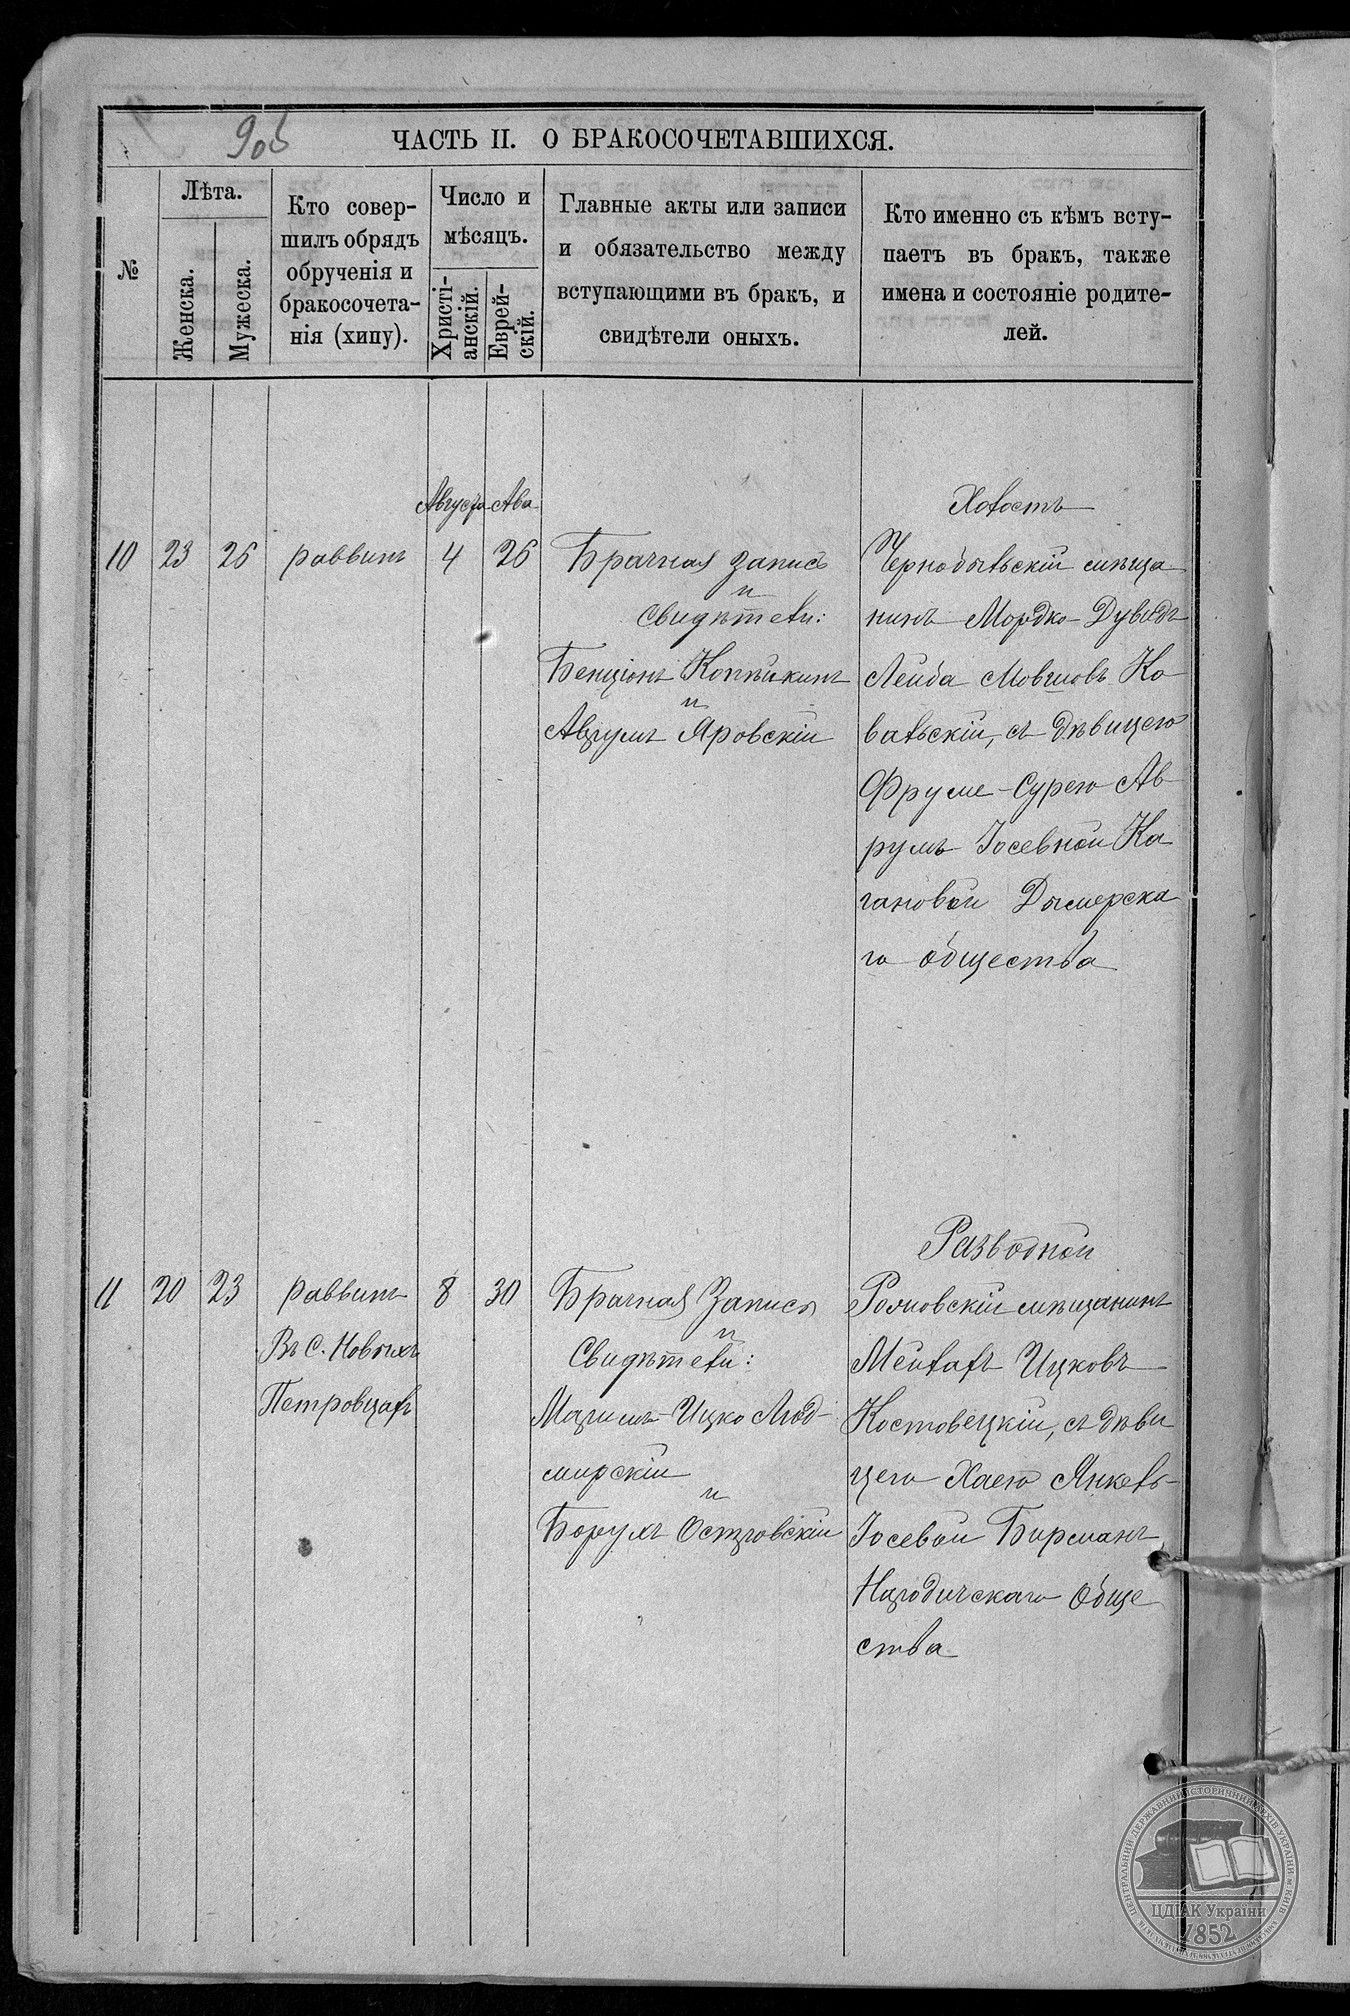 9об
ЧАСТЬ II. О БРАКОСОЧЕТАВШИХСЯ.
№
Лѣта.
Женска.
Мужеска.
Кто совер-
шилъ обрядъ
обрученія и
бракосочета-
нія (хипу).
Число и
мѣсяцъ.
Христі-
анскій.
Еврей-
скій.
Главные акты или записи
и обязательство между
вступающими въ бракъ, и
свидѣтели оныхъ.
Кто именно съ кѣмъ всту-
паетъ въ бракъ, также
имена и состояніе родите-
лей.
Августа Ава
10 23 26 раввинъ 4 26
Брачная запись
и
Свидѣтели:
Бенціонъ Копѣйкинъ
и
Аврумъ Яровскій
Холостъ
Чернобыльскій мѣща-
нинъ Мордко-Дувидъ
Лейба Мовшовъ Ко-
вальскій, съ дѣвицею
Фруме-Сурею Ав-
румъ Іосевной Ка
гановой Дымерска
го общества
11 20 23 раввинъ 8 30
Въ С. Новыхъ
Петровцахъ
Брачная Запись
и
Свидѣтели:
Мазимъ-Ицко Люд-
мирскій
и
Борухъ Островскій
Разводной
мѣщанинъ
Мейлахъ Ицковъ
Костовецкій, съ дѣви
цею Хаею Янкель-
Іосевой Бирманъ
Народичскаго обще
ства
ЦЕНТРАЛЬНИЙ ДЕРЖАВНИЙ ІСТОРИЧНИЙ АРХІВ УКРАЇНИ м. КИЇВ
ЦДІАК України
1852